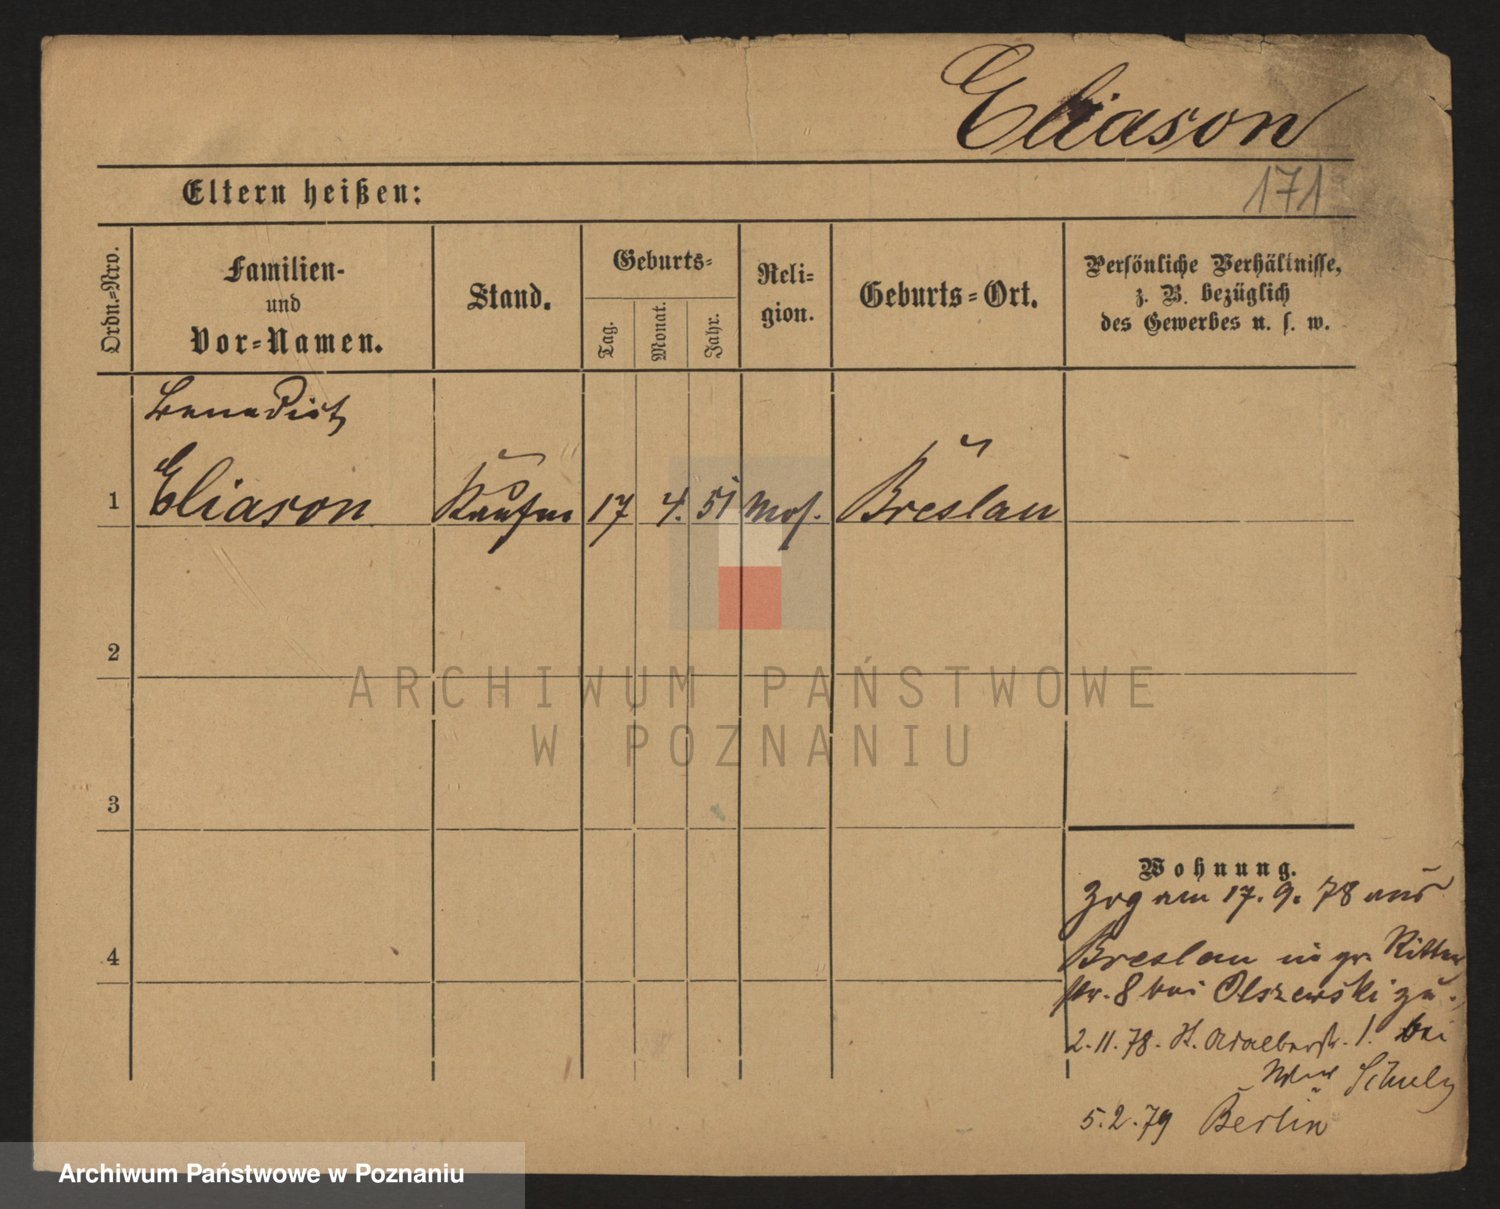 Eliason
Eltern heißen:
171
Ordn.=Nro.
Familien-
und
Vor=Namen.
Stand.
Geburts=
Tag.
Monat.
Jahr.
Reli=
gion.
Geburts=Ort.
Persönliche Verhältnisse,
z. B. bezüglich
des Gewerbes u. s. w.
Benedict
1 Eliason Kaufm 17 4. 51 Mos. Breslau
2
ARCHIWUM PAŃSTWOWE
W POZNANIU
3
Wohnung.
Zog am 17. 9. 78 aus
4
Breslau in gr. Ritter
str. 8 bei Olszewski zu.
2. 11. 78. St. Adalbertstr. 1. bei
Schulz
5. 2. 79 Berlin
Archiwum Państwowe w Poznaniu